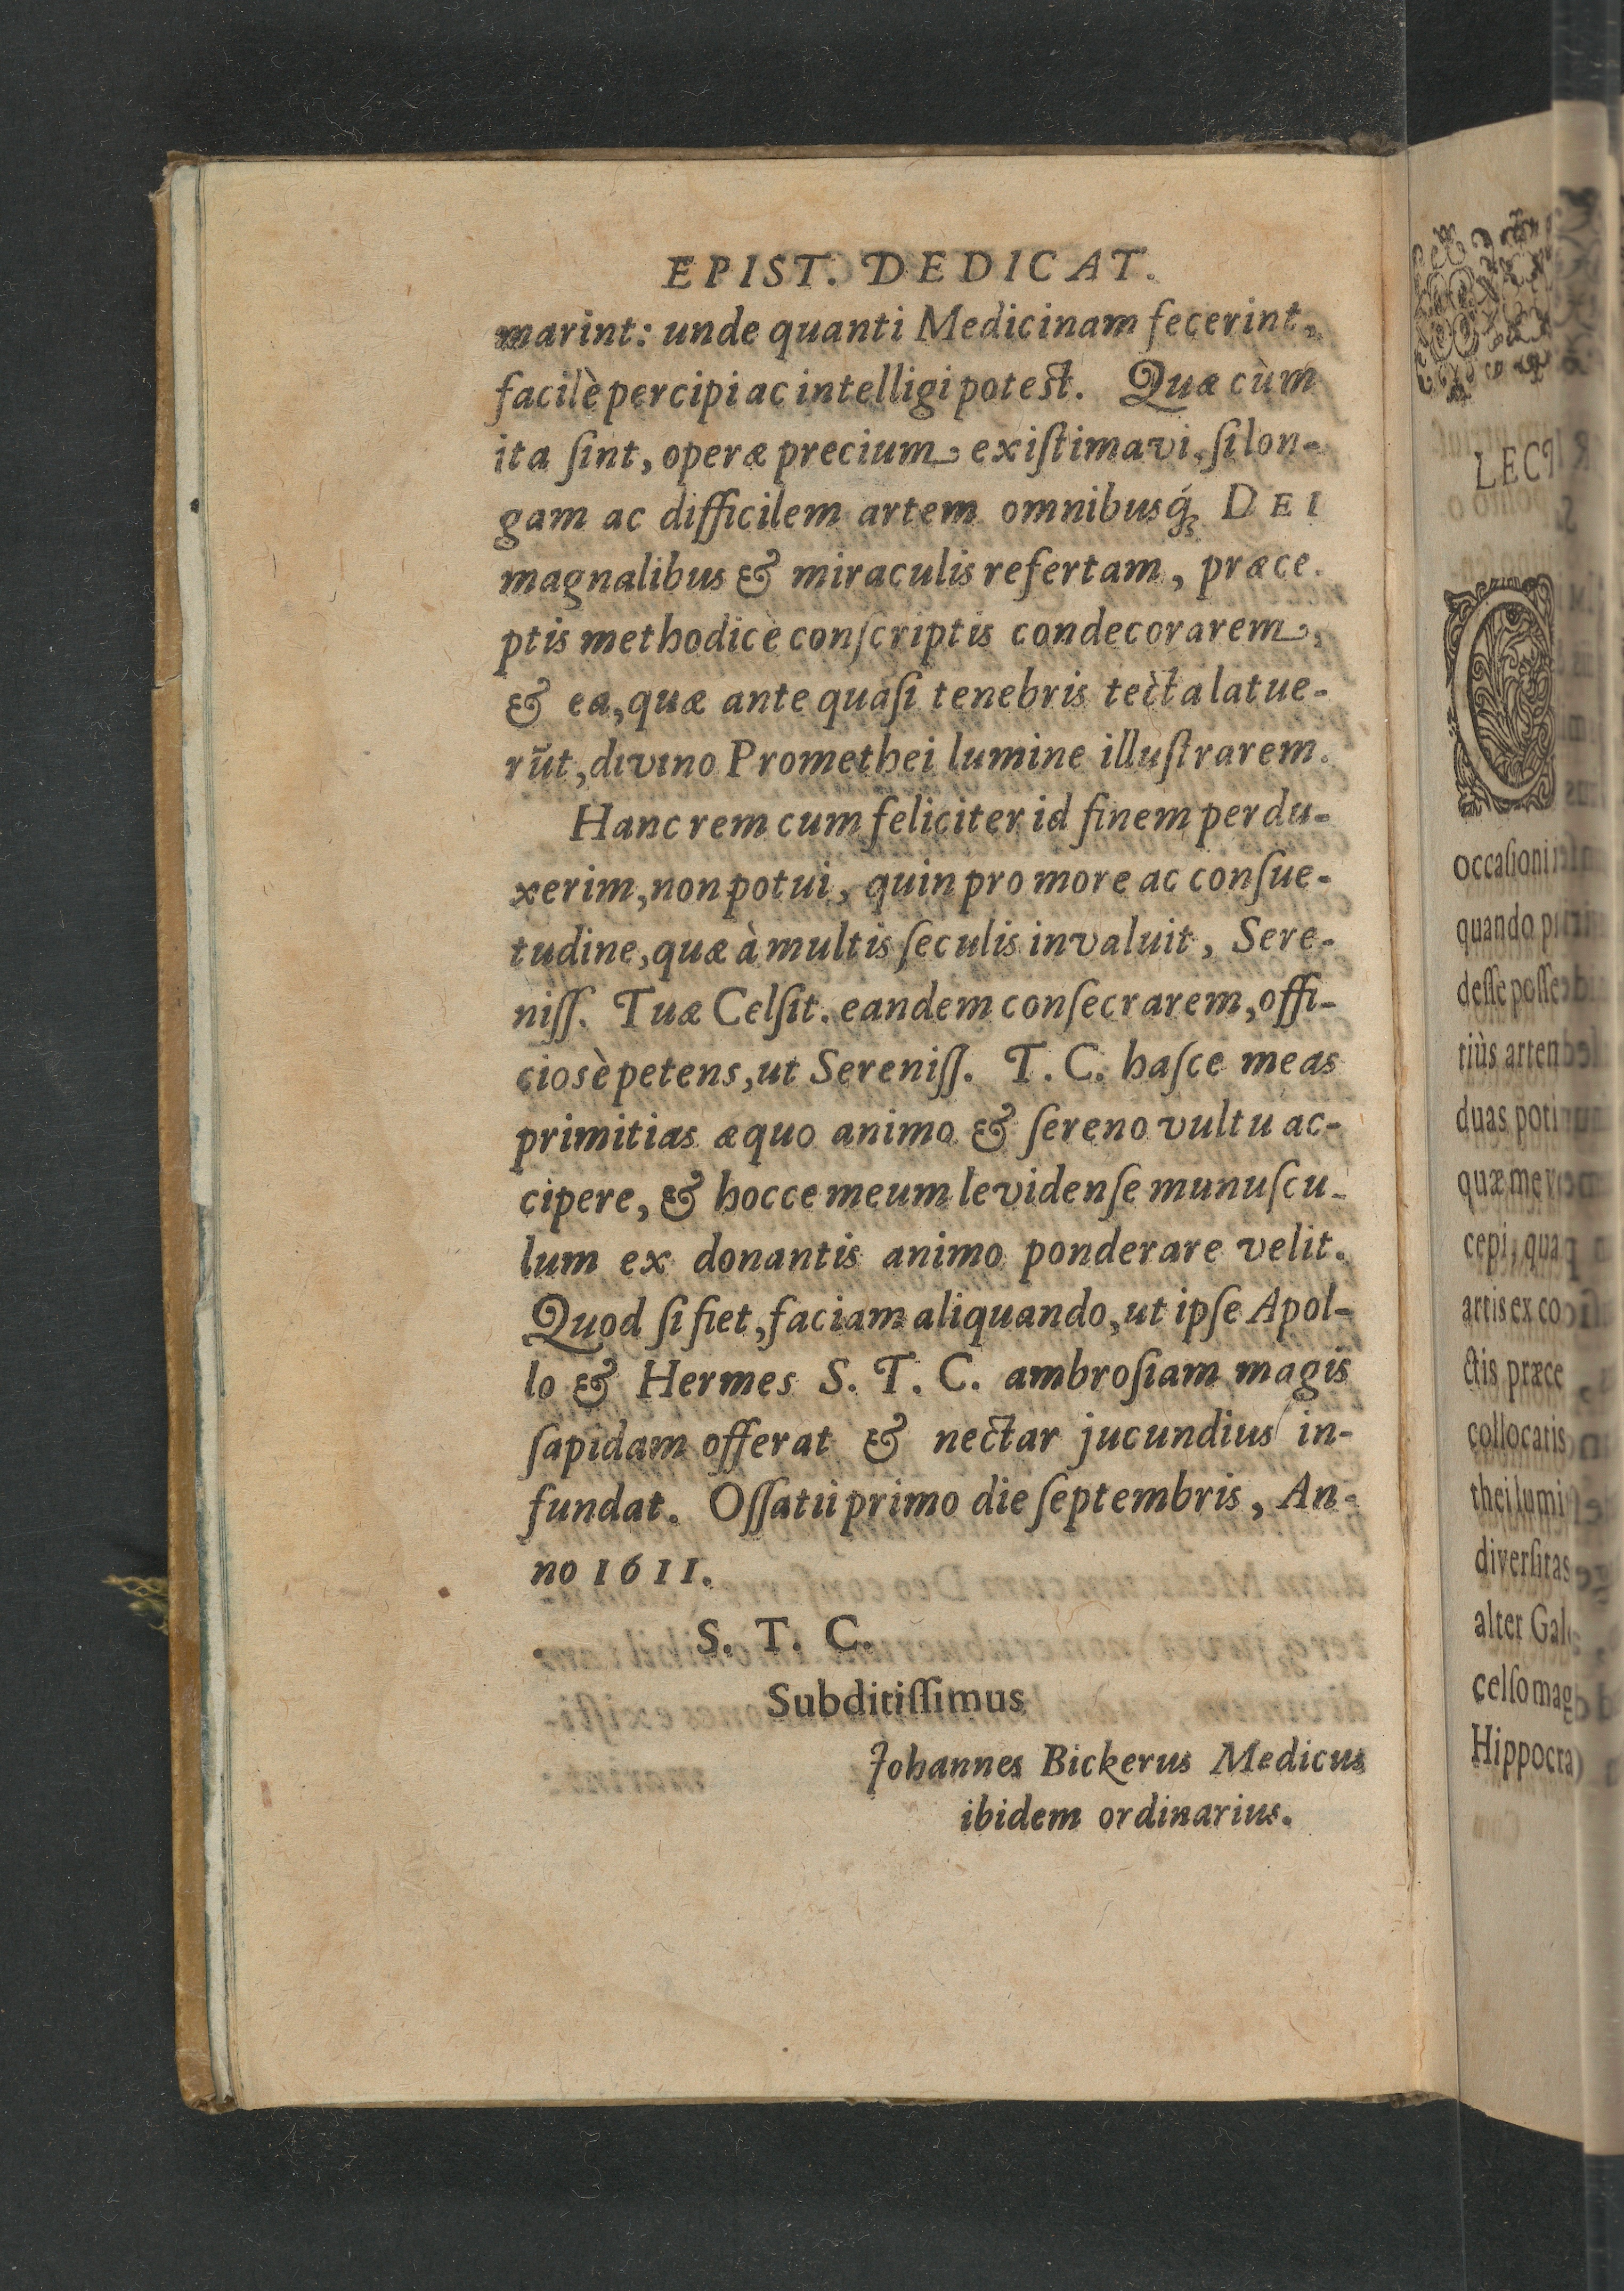 EPIST. DEDICAT.
marint: unde quanti Medicinam fecerint,
facilè percipi ac intelligi potest. Quæ cùm
ita ſint, operæ precium existimavi, ſi lon-
gam ac difficilem artem omnibusq́ꝫ DEI
magnalibus & miraculis refertam, præce-
ptis methodicè conſcriptis condecorarem,
& ea, quæ ante quaſi tenebris tècta latue-
rũt, divino Promethei lumine illuſtrarem.
Hanc rem cum feliciter id finem perdu-
xerim, non potui, quin pro more ac conſue-
tudine, quæ à multis ſeculis invaluit, Sere-
niſſ. Tuæ Celſit. eandem conſecrarem, offi-
ciosè petens, ut Sereniſſ. T. C. haſce meas
primitias æquo animo & ſereno vultu ac-
cipere, & hocce meum levidenſe munuſcu-
lum ex donantis animo ponderare velit.
Quod ſi fiet, faciam aliquando, ut ipſe Apol-
lo & Hermes S. T. C. ambroſiam magis
ſapidam offerat & nectar jucundius in-
fundat. Oſſatii primo die ſeptembris, An-
no 1611.
S. T. C.
Subditiſſimus
Johannes Bickerus Medicus
ibidem ordinarius.
LECT
C
occaſioni
quando
deſſe poſſe
tiùs artem
duas poti
quæ me
cepi, qua
artis ex co
ctis præce
collocatis
thei lumi
diverſitas
alter Gal
celſo mag
Hippocra